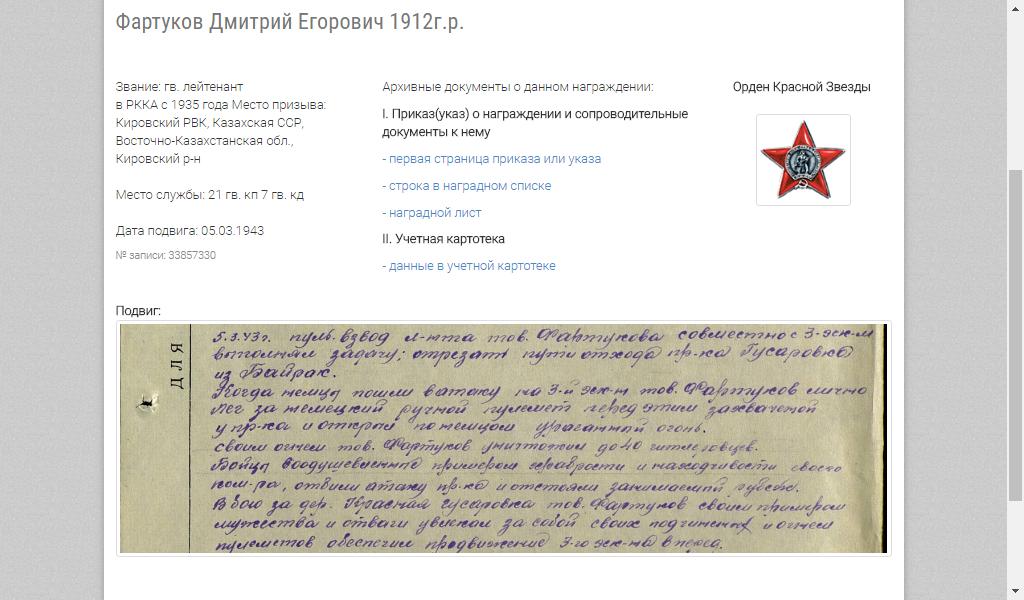 Фартуков Дмитрий Егорович 1912г.р.
Звание: гв. лейтенант
в РККА с 1935 года Место призыва:
Кировский РВК, Казахская ССР,
Восточно-Казахстанская обл.,
Кировский р-н
Место службы: 21 гв. кп 7 гв. кд
Дата подвига: 05.03.1943
№ записи: 33857330
Архивные документы о данном награждении:
I. Приказ(указ) о награждении и сопроводительные
документы к нему
- первая страница приказа или указа
- строка в наградном списке
- наградной лист
II. Учетная картотека
- данные в учетной картотеке
Орден Красной Звезды
Подвиг:
ДЛЯ
5.3.43г. пуль. взвод л-нта тов. Фартукова совместно с 3-эск-м
выполнял задачу; отрезать пути отхода пр-ка Гусаровка
из Байрак.
Когда немцы пошли в атаку на 3-й эск-н тов. Фартуков лично
лег за немецкий ручной пулемет перед этим захваченой
у пр-ка и открыл по немцом ураганный огонь.
своим огнем тов. Фартуков уничтожил до 40 гитлеровцев.
Бойцы воодушевленные примером храбрости и находчивости своего
ком-ра, отбили атаку пр-ка и отстояли занимаемый рубеж.
В бою за дер. Красная гусаровка тов. Фартуков своим примером
мужества и отваги увлекал за собой своих подчиненных и огнем
пулеметов обеспечил продвижение 3-го эск-на вперед.